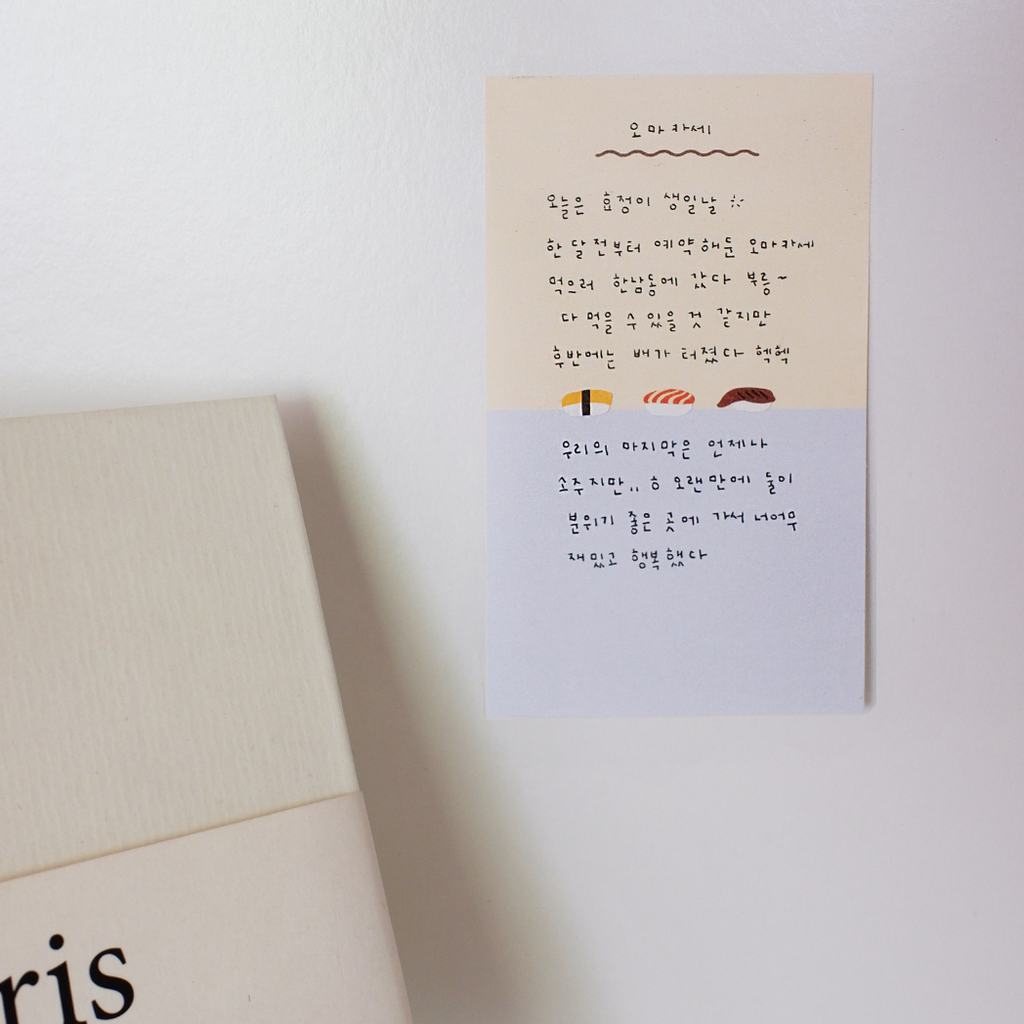 오마카세
오늘은 효정이 생일날
한 달 전부터 예약해둔 오마카세
먹으러 한남동에 갔다 부릉~
다 먹을 수 있을 것 같지만
후반에는 배가 터졌다 헥헥
우리의 마지막은 언제나
소주지만,, ㅎ 오랜만에 둘이
분위기 좋은 곳에 가서 너어무
재밌고 행복했다
ris